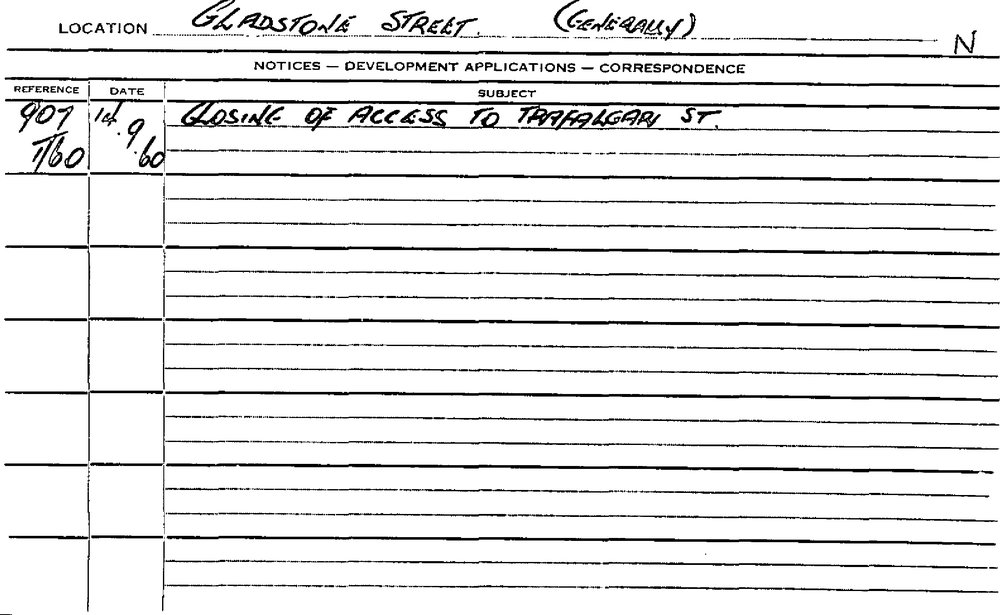 LOCATION GLADSTONE STREET. (GENERALLY)
N
NOTICES — DEVELOPMENT APPLICATIONS — CORRESPONDENCE
REFERENCE DATE SUBJECT
907 CLOSING OF ACCESS TO TRAFALGAR ST.
9
/60 .60